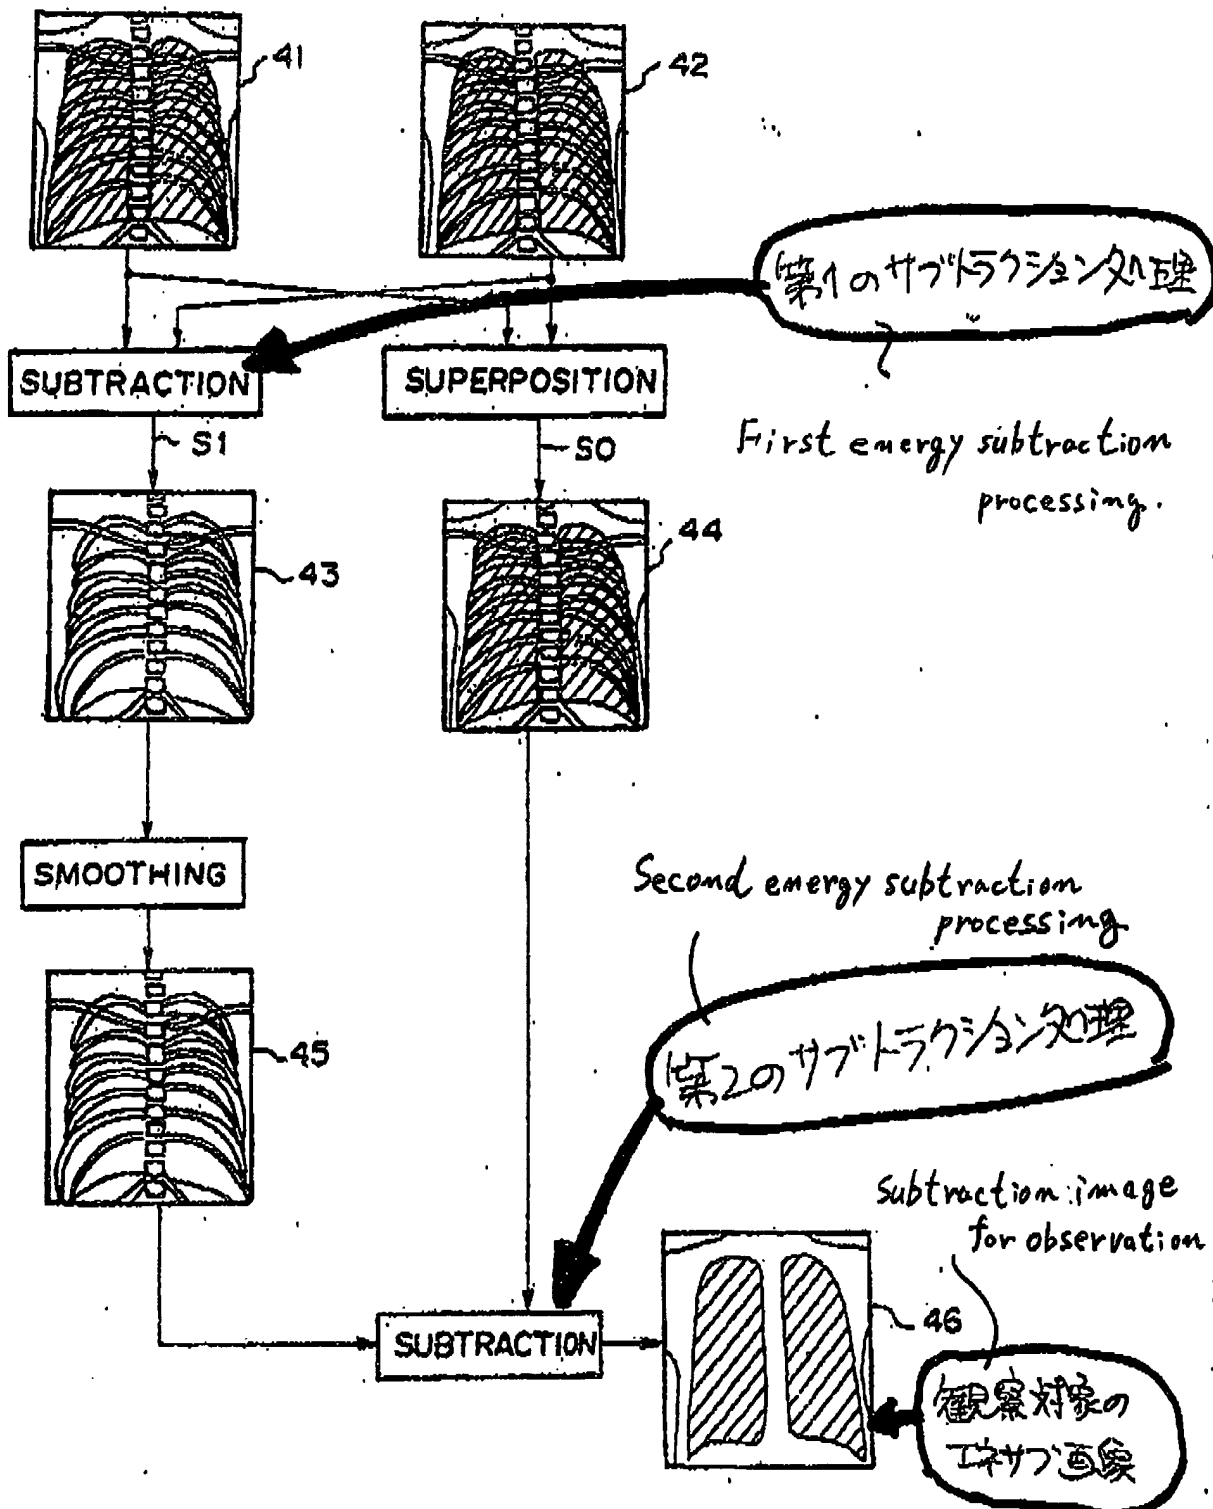 41
42
第1のサブトラクション処理
SUBTRACTION
SUPERPOSITION
S1
S0
First energy subtraction
processing.
43
44
SMOOTHING
Second energy subtraction
processing
第2のサブトラクション処理
45
Subtraction image
for observation
46
SUBTRACTION
観察対象の
エネサブ画像